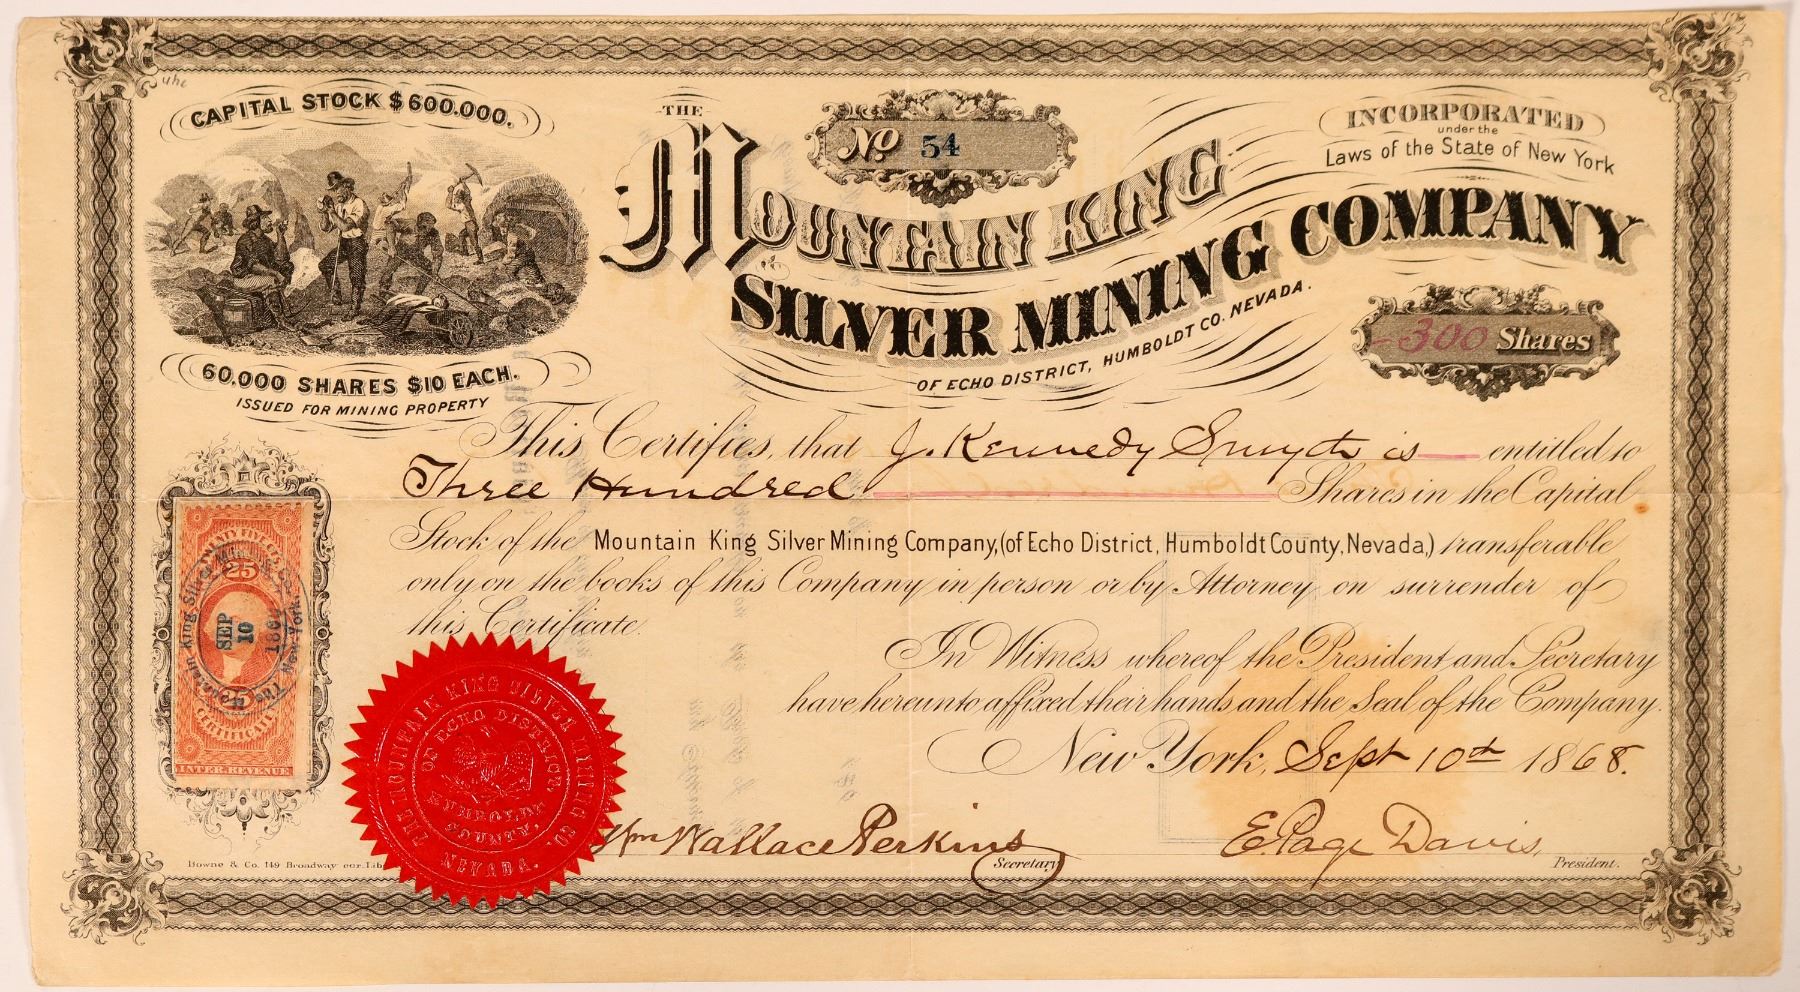 uhc
CAPITAL STOCK $600.000.
THE
No 54
INCORPORATED
under the
Laws of the State of New York
MOUNTAIN KING
SILVER MINING COMPANY
OF ECHO DISTRICT, HUMBOLDT CO. NEVADA.
300 Shares
60.000 SHARES $10 EACH.
ISSUED FOR MINING PROPERTY
This Certifies, that J. Kennedy Smyth is entitled to
Three Hundred Shares in the Capital
Stock of the Mountain King Silver Mining Company, (of Echo District, Humboldt County, Nevada,) transferable
only on the books of this Company in person or by Attorney on surrender of
this Certificate.
In Witness whereof the President and Secretary
have hereunto affixed their hands and the Seal of the Company.
New York, Sept 10th 1868.
25
The Mountain King Silver Mining Co.
New-York.
SEP
10
25
CERTIFICATE
INTER. REVENUE
THE MOUNTAIN KING SILVER MINING CO.
OF ECHO DISTRICT
HUMBOLDT
COUNTY,
NEVADA.
Wm Wallace Perkins
Secretary
E. Page Davis,
President.
Bowne & Co. 149 Broadway cor. Lib